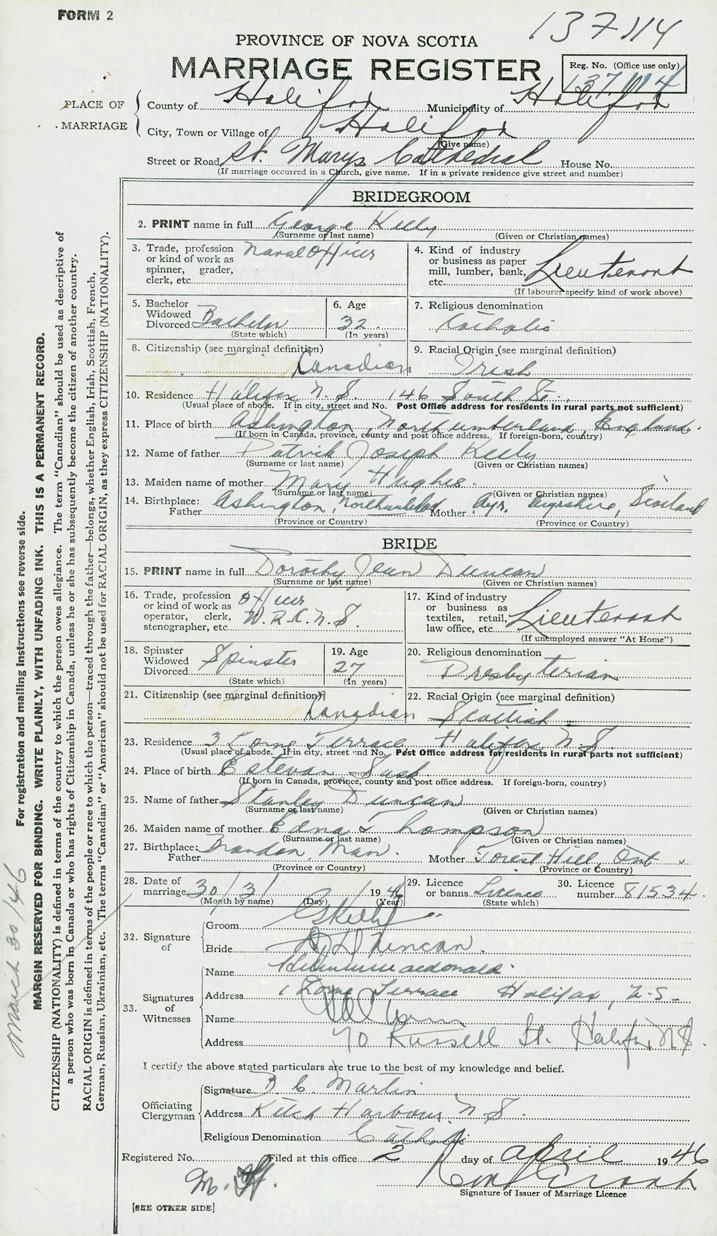 FORM 2
137114
PROVINCE OF NOVA SCOTIA
MARRIAGE REGISTER
Reg. No. (Office use only)
137114
PLACE OF MARRIAGE
County of Halifax Municipality of Halifax
City, Town or Village of Halifax
(Give name)
Street or Road St. Marys Cathedral House No.
(If marriage occurred in a Church, give name. If in a private residence give street and number)
BRIDEGROOM
2. PRINT name in full George Kelly
(Surname or last name) (Given or Christian names)
3. Trade, profession or kind of work as spinner, grader, clerk, etc. Naval Officer
4. Kind of industry or business as paper mill, lumber, bank, etc. Lieutenant
(If labourer specify kind of work above)
5. Bachelor Widowed Divorced Bachelor
(State which)
6. Age 32
(In years)
7. Religious denomination
Catholic
8. Citizenship (see marginal definition)
Canadian
9. Racial Origin (see marginal definition)
Irish
10. Residence Halifax N.S. 146 South St.
(Usual place of abode. If in city, street and No. Post Office address for residents in rural parts not sufficient)
11. Place of birth Ashington, Northumberland, England.
(If born in Canada, province, county and post office address. If foreign-born, country)
12. Name of father Patrick Joseph Kelly
(Surname or last name) (Given or Christian names)
13. Maiden name of mother Mary Hughes.
(Surname or last name) (Given or Christian names)
14. Birthplace: Father Ashington, Northumberland Mother Ayr, Ayrshire, Scotland
(Province or Country) (Province or Country)
BRIDE
15. PRINT name in full Dorothy Jean Duncan
(Surname or last name) (Given or Christian names)
16. Trade, profession or kind of work as operator, clerk, stenographer, etc. Officer W.R.C.N.S.
17. Kind of industry or business as textiles, retail, law office, etc. Lieutenant
(If unemployed answer "At Home")
18. Spinster Widowed Divorced Spinster
(State which)
19. Age 27
(In years)
20. Religious denomination
Presbyterian
21. Citizenship (see marginal definition)
Canadian
22. Racial Origin (see marginal definition)
Scottish
23. Residence 3 Lorne Terrace Halifax N.S.
(Usual place of abode. If in city, street and No. Post Office address for residents in rural parts not sufficient)
24. Place of birth Estevan Sask
(If born in Canada, province, county and post office address. If foreign-born, country)
25. Name of father Stanley Duncan
(Surname or last name) (Given or Christian names)
26. Maiden name of mother Edna Thompson
(Surname or last name) (Given or Christian names)
27. Birthplace: Father Brandon, Man. Mother Forest Hill, Ont.
(Province or Country) (Province or Country)
28. Date of marriage 30/3/ 1946
(Month by name) (Day) (Year)
29. Licence or banns Licence
(State which)
30. Licence number 81534.
32. Signature of
Groom GKelly
Bride D. J. Duncan.
33. Signatures of Witnesses
Name Macdonald.
Address 1 Lorne Terrace Halifax, N.S.
Name
Address 70 Russell St. Halifax, N.S.
I certify the above stated particulars are true to the best of my knowledge and belief.
Officiating Clergyman
Signature B. C. Martin
Address Ketch Harbour N.S.
Religious Denomination Catholic
Registered No. Filed at this office 2 day of April 1946
Signature of Issuer of Marriage Licence
[SEE OTHER SIDE]
For registration and mailing instructions see reverse side.
MARGIN RESERVED FOR BINDING. WRITE PLAINLY, WITH UNFADING INK. THIS IS A PERMANENT RECORD.
CITIZENSHIP (NATIONALITY) is defined in terms of the country to which the person owes allegiance. The term "Canadian" should be used as descriptive of
a person who was born in Canada or who has rights of Citizenship in Canada, unless he or she has subsequently become the citizen of another country.
RACIAL ORIGIN is defined in terms of the people or race to which the person—traced through the father—belongs, whether English, Irish, Scottish, French,
German, Russian, Ukrainian, etc. The terms "Canadian" or "American" should not be used for RACIAL ORIGIN, as they express CITIZENSHIP (NATIONALITY).
March 30/46